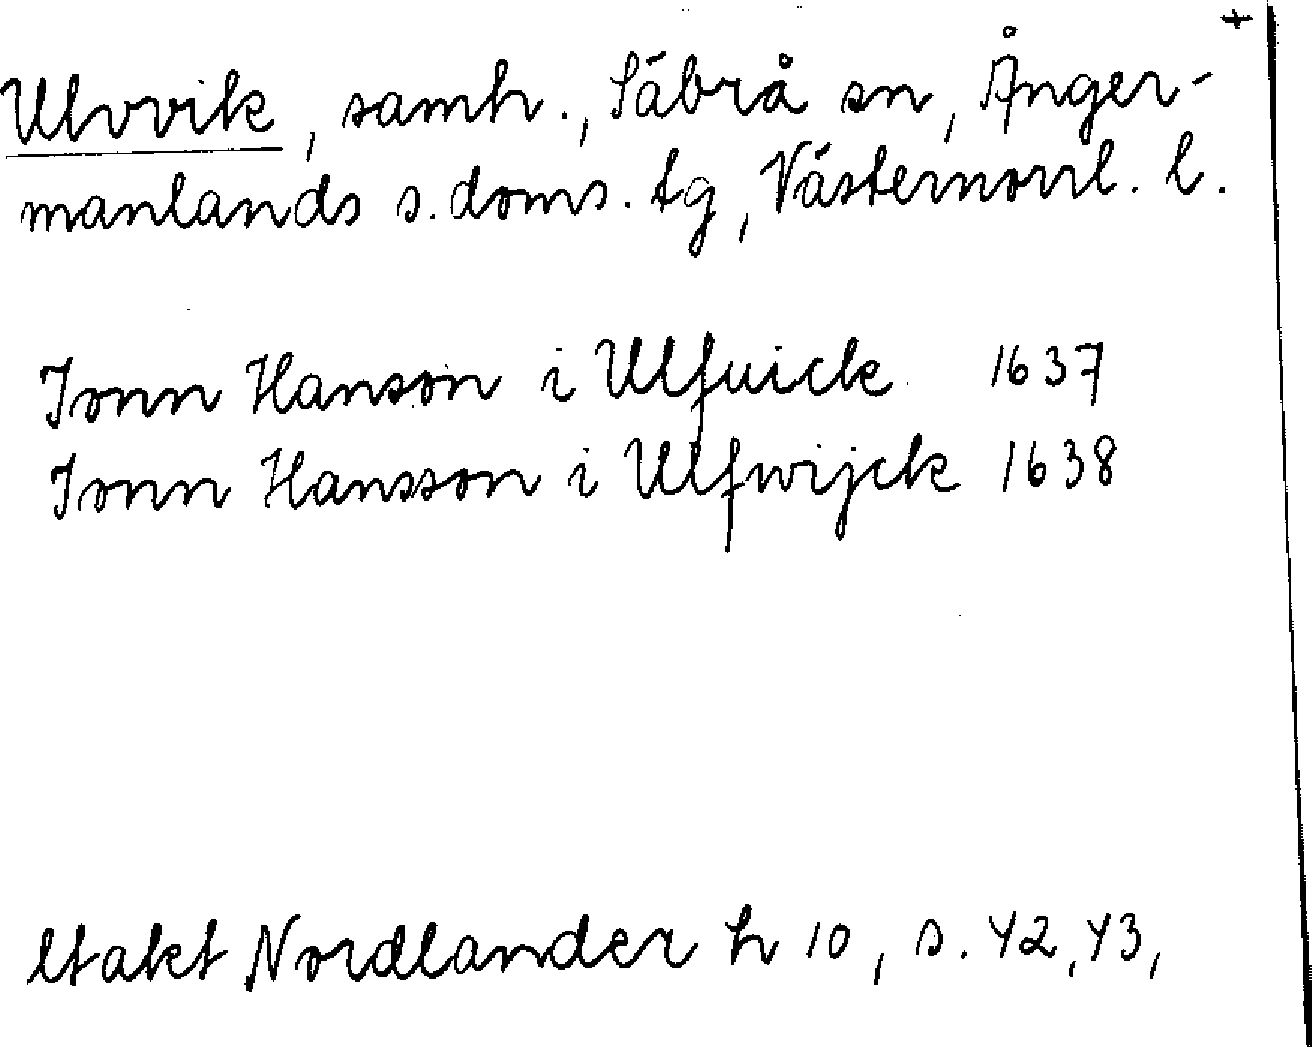 +
Ulvvik, samh., Säbrå sn, Ånger-
manlands s. doms. tg, Västernorrl. l.
Jonn Hanson i Ulfuick 1637
Jonn Hansson i Ulfwijck 1638
Utakt Nordlander h 10, s. 42, 43,